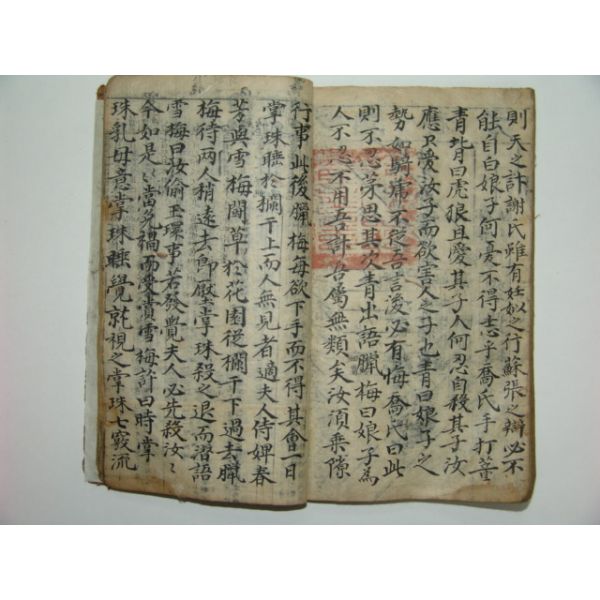 則天之計謝氏雖有妊姒之行蘇張之辯必不
能自白娘子何憂不得志乎喬氏手打董
青背曰虎狼且愛其子人何忍自殺其子汝
應只愛汝子而欲害人之子也青曰娘子之
勢如騎虎不從吾言後必有悔喬氏曰此
則不忍荣思其次青出語臘梅曰娘子為
人不忍不用吾計吾屬無類矣汝須乗隙
行事此後臘梅每欲下手而不得其會一日
掌珠睡於欄干上而人無見者適夫人侍婢春
芳與雪梅鬪草於花園從欄干下過去臘
梅待兩人稍遠去即壓掌珠殺之退而潛語
雪梅曰汝偷玉環事若發覺夫人必先殺汝〻
今如是〻當免禍而受賞雪梅許曰時掌
珠乳母意掌珠睡覺就視之掌珠七竅流